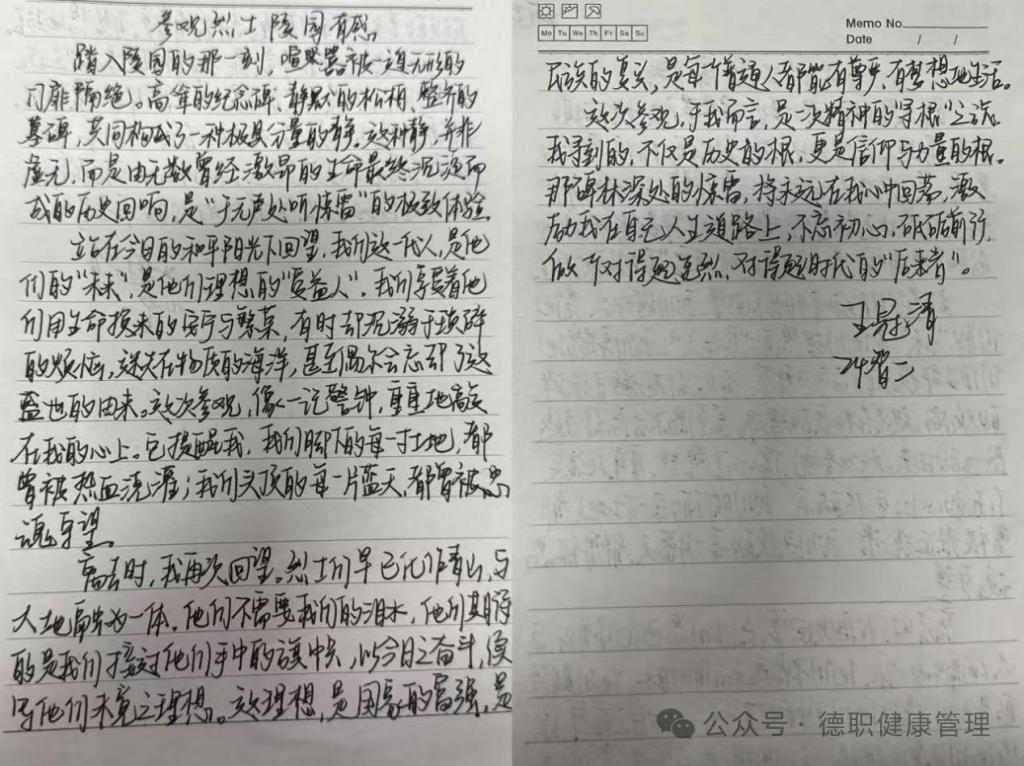 参观烈士陵园有感
踏入陵园的那一刻,喧嚣被一道无形的
门扉隔绝。高耸的纪念碑、静默的松柏、整齐的
墓碑,共同构成了一种极具分量的静。这种静,并非
虚无,而是由无数曾经激昂的生命最终沉淀而
成的历史回响,是“于无声处听惊雷”的极致体验。
站在今日的和平阳光下回望,我们这一代人,是他
们的“未来”,是他们理想的“受益人”。我们享受着他
们用生命换来的安宁与繁荣,有时却沉溺于琐碎
的烦恼,迷失在物质的海洋,甚至偶尔会忘却了这
盛世的由来。这次参观,像一记警钟,重重地敲
在我的心上。它提醒我,我们脚下的每一寸土地,都
曾被热血浇灌;我们头顶的每一片蓝天,都曾被忠
魂守望。
离去时,我再次回望。烈士们早已化作青山,与
大地融为一体。他们不需要我们的泪水,他们期待
的是我们接过他们手中的旗帜,以今日之奋斗,续
写他们未竟之理想。这理想,是国家的富强,是
Memo No.
Mo Tu We Th Fr Sa Su
Date / /
民族的复兴,是每个普通人都能有尊严、有梦想地生活。
这次参观,于我而言,是一次精神的“寻根”之旅。
我寻到的,不仅是历史的根,更是信仰与力量的根。
那碑林深处的惊雷,将永远在我心中回荡,激
励我在自己人生道路上,不忘初心,砥砺前行,
做一个对得起先烈、对得起时代的“后来者”。
王冠清
24智二
公众号·德职健康管理